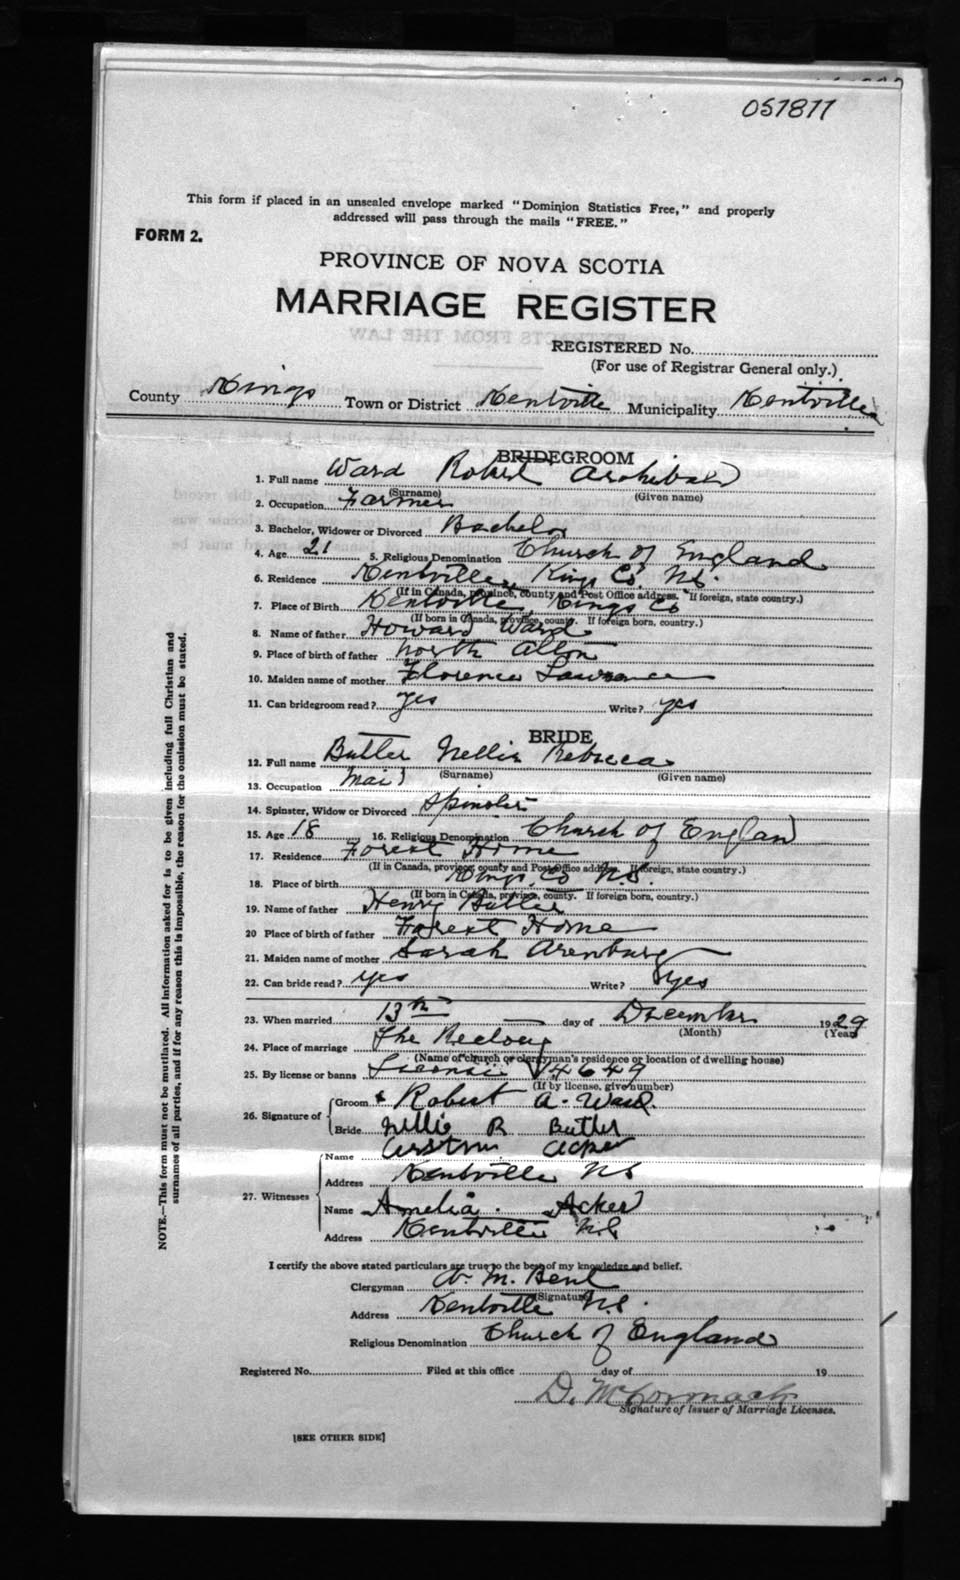 051811
This form if placed in an unsealed envelope marked "Dominion Statistics Free," and properly
addressed will pass through the mails "FREE."
FORM 2.
PROVINCE OF NOVA SCOTIA
MARRIAGE REGISTER
REGISTERED No.
(For use of Registrar General only.)
County Kings Town or District Kentville Municipality Kentville
BRIDEGROOM
1. Full name Ward Robert Archibald
(Surname) (Given name)
2. Occupation Farmer
3. Bachelor, Widower or Divorced Bachelor
4. Age 21 5. Religious Denomination Church of England
6. Residence Kentville, Kings Co. N.S.
(If in Canada, province, county and Post Office address. If foreign, state country.)
7. Place of Birth Kentville, Kings Co
(If born in Canada, province, county. If foreign born, country.)
8. Name of father Howard Ward
9. Place of birth of father North Alton
10. Maiden name of mother Florence Lawrence
11. Can bridegroom read? Yes Write? yes
BRIDE
12. Full name Butler Nellie Rebecca
(Surname) (Given name)
13. Occupation Maid
14. Spinster, Widow or Divorced Spinster
15. Age 18 16. Religious Denomination Church of England
17. Residence Forest Home
(If in Canada, province, county and Post Office address. If foreign, state country.)
18. Place of birth Kings Co N.S.
(If born in Canada, province, county. If foreign born, country.)
19. Name of father Henry Butler
20 Place of birth of father Forest Home
21. Maiden name of mother Sarah Arenburg
22. Can bride read? yes Write? yes
23. When married 13th day of December 1929
(Month) (Year)
24. Place of marriage The Rectory
(Name of church or clergyman's residence or location of dwelling house)
25. By license or banns License 4649
(If by license, give number)
26. Signature of Groom Robert A. Ward.
Bride Nellie R Butler
27. Witnesses Name Acker
Address Kentville NS
Name Amelia. Acker
Address Kentville N.S.
I certify the above stated particulars are true to the best of my knowledge and belief.
Clergyman A. M. Bent
(Signature)
Address Kentville N.S.
Religious Denomination Church of England
Registered No. Filed at this office day of 19
D. McCormack
Signature of Issuer of Marriage Licenses.
[SEE OTHER SIDE]
NOTE.—This form must not be mutilated. All information asked for is to be given including full Christian and
surnames of all parties, and if for any reason this is impossible, the reason for the omission must be stated.